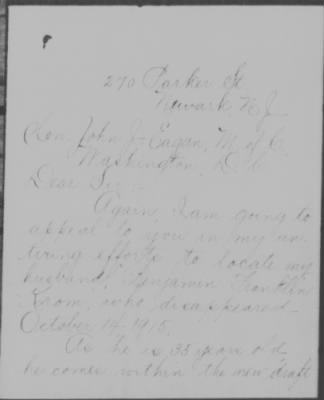 270 Parker St
Newark, N.J.
Hon. John J. Eagan, M. of C.
Washington, D.C.
Dear Sir:-
Again, I am going to
appeal to you in my un-
tiring efforts to locate my
husband, Benjamin Franklin
who disappeared
October 14, 1915.
As he is 35 years old
he comes within the new draft